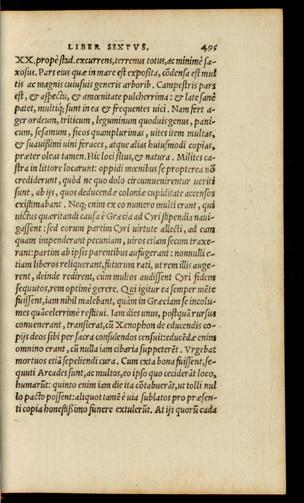 LIBER SEXTVS. 495
XX. propè stad. excurrens, terrenus totus, ac minimè sa-
xosus. Pars eius quæ in mare est exposita, cõdensa est mul
tis ac magnis cuiusuis generis arborib. Campestris pars
est, & aspectu, & amœnitate pulcherrima: & late sanè
patet, multiq́; sunt in ea & frequentes uici. Nam fert a-
ger ordeum, triticum, leguminum quoduis genus, pani-
cum, sesamum, ficos quamplurimas, uites item multas,
& suauißimi uini feraces, atque alias huiusmodi copias,
præter oleas tamen. Hic loci situs, & natura. Milites ca-
stra in littore locarunt: oppidi mœnibus se propterea nõ
crediderunt, quòd ne quo dolo circumuenirentur ueriti
sunt, ab ijs, quos deducendæ coloniæ cupiditate accensos
existimabant. Neq; enim ex eo numero multi erant, qui
uictus quæritandi causa è Græcia ad Cyri stipendia naui-
gaßent: sed eorum partim Cyri uirtute allecti, ad eam
quam impenderant pecuniam, uiros etiam secum traxe-
rant: partim ab ipsis parentibus aufugerant: nonnulli e-
tiam liberos reliquerant, futurum rati, ut rem illis auge-
rent, deinde redirent, cum multos audißent Cyri fidem
sequutos, rem optimè gerere. Qui igitur ea semper mẽte
fuißent, iam nihil malebant, quàm in Græciam se incolu-
mes quàm celerrimè restitui. Iam dies unus, postquã rursus
conuenerant, transierat, cũ Xenophon de educendis co-
pijs deos sibi per sacra consulendos censuit: educẽdæ enim
omnino erant, cũ nulla iam cibaria suppeterẽt. Vrgebat
mortuos etiã sepeliendi cura. Cum exta bona fuißent, se-
quuti Arcades sunt, ac multos, eo ipso quo ceciderãt loco,
humarũt: quinto enim iam die ita cõtabuerãt, ut tolli nul
lo pacto possent: aliquot tamẽ è uia sublatos pro præsen-
ti copia honestißimo funere extulerũt. At ijs quorũ cada